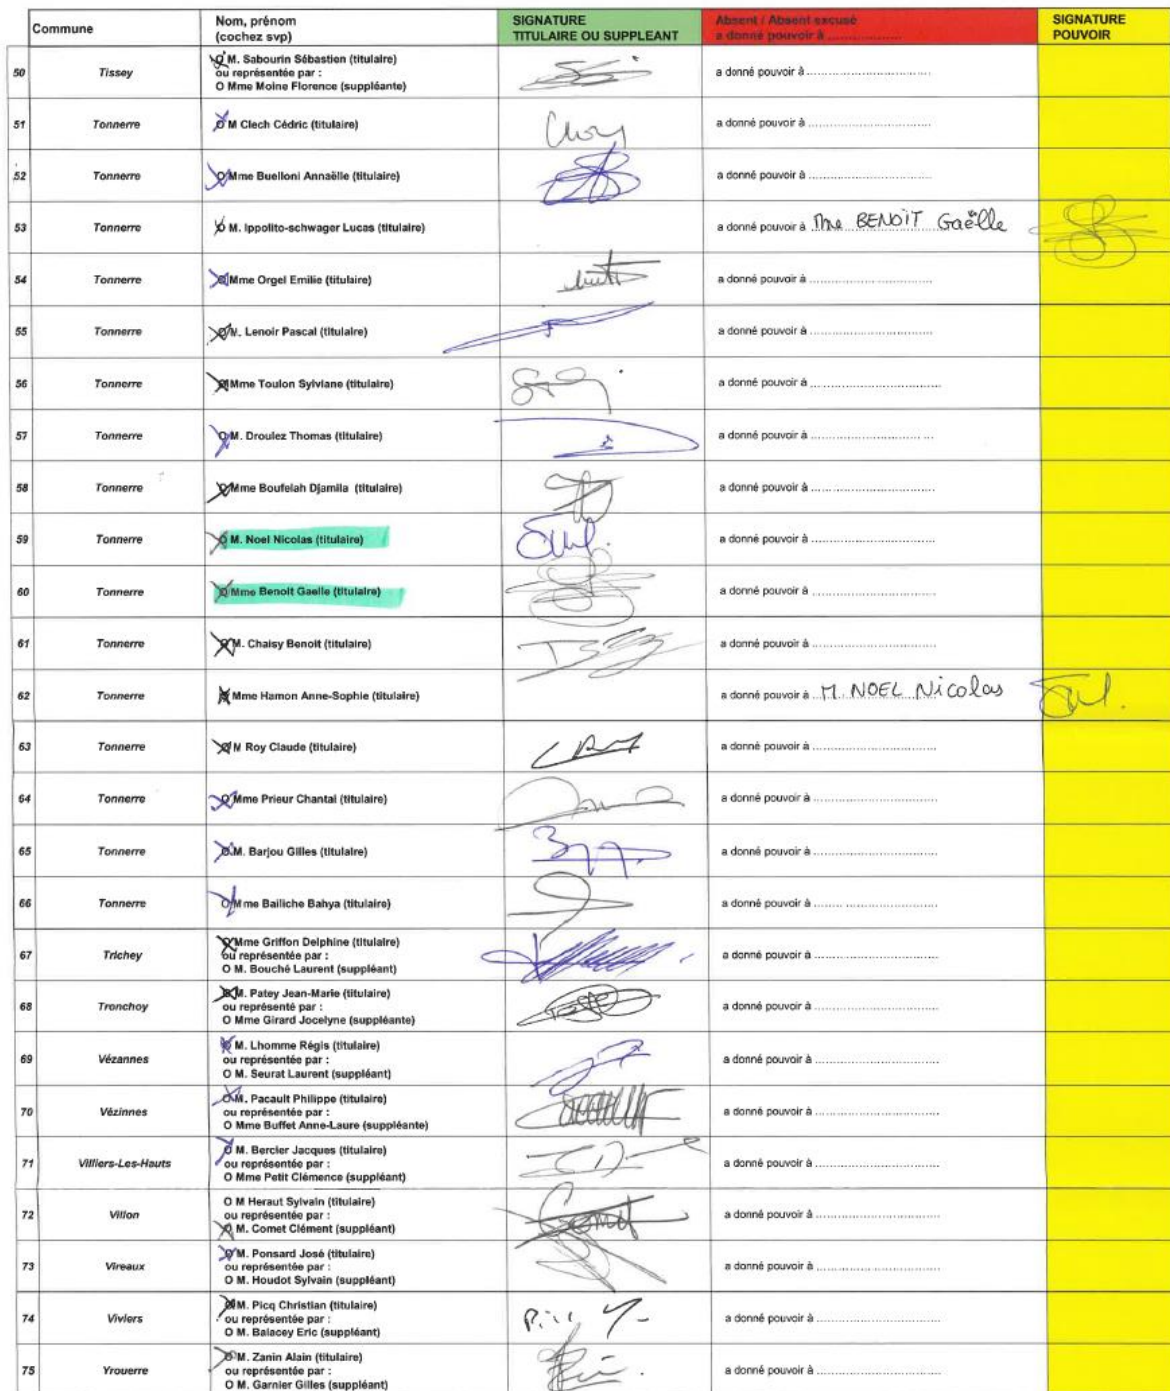 Commune
Nom, prénom
(cochez svp)
SIGNATURE
TITULAIRE OU SUPPLEANT
Absent / Absent excusé
a donné pouvoir à ..................
SIGNATURE
POUVOIR
50 Tissey
O M. Sabourin Sébastien (titulaire)
ou représentée par :
O Mme Moine Florence (suppléante)
a donné pouvoir à ..................
51 Tonnerre O M Clech Cédric (titulaire) a donné pouvoir à ..................
52 Tonnerre O Mme Buelloni Annaëlle (titulaire) a donné pouvoir à ..................
53 Tonnerre O M. Ippolito-schwager Lucas (titulaire) a donné pouvoir à Mme BENOÎT Gaëlle
54 Tonnerre O Mme Orgel Emilie (titulaire) a donné pouvoir à ..................
55 Tonnerre O M. Lenoir Pascal (titulaire) a donné pouvoir à ..................
56 Tonnerre O Mme Toulon Sylviane (titulaire) a donné pouvoir à ..................
57 Tonnerre O M. Droulez Thomas (titulaire) a donné pouvoir à ..................
58 Tonnerre O Mme Boufelah Djamila (titulaire) a donné pouvoir à ..................
59 Tonnerre O M. Noel Nicolas (titulaire) a donné pouvoir à ..................
60 Tonnerre O Mme Benoit Gaelle (titulaire) a donné pouvoir à ..................
61 Tonnerre O M. Chaisy Benoit (titulaire) a donné pouvoir à ..................
62 Tonnerre O Mme Hamon Anne-Sophie (titulaire) a donné pouvoir à M. NOEL Nicolas
63 Tonnerre O M Roy Claude (titulaire) a donné pouvoir à ..................
64 Tonnerre O Mme Prieur Chantal (titulaire) a donné pouvoir à ..................
65 Tonnerre O M. Barjou Gilles (titulaire) a donné pouvoir à ..................
66 Tonnerre O Mme Bailiche Bahya (titulaire) a donné pouvoir à ..................
67 Trichey
O Mme Griffon Delphine (titulaire)
ou représentée par :
O M. Bouché Laurent (suppléant)
a donné pouvoir à ..................
68 Tronchoy
O M. Patey Jean-Marie (titulaire)
ou représenté par :
O Mme Girard Jocelyne (suppléante)
a donné pouvoir à ..................
69 Vézannes
O M. Lhomme Régis (titulaire)
ou représentée par :
O M. Seurat Laurent (suppléant)
a donné pouvoir à ..................
70 Vézinnes
O M. Pacault Philippe (titulaire)
ou représentée par :
O Mme Buffet Anne-Laure (suppléante)
a donné pouvoir à ..................
71 Villiers-Les-Hauts
O M. Bercier Jacques (titulaire)
ou représentée par :
O Mme Petit Clémence (suppléant)
a donné pouvoir à ..................
72 Villon
O M Heraut Sylvain (titulaire)
ou représentée par :
O M. Comet Clément (suppléant)
Comet
a donné pouvoir à ..................
73 Vireaux
O M. Ponsard José (titulaire)
ou représentée par :
O M. Houdot Sylvain (suppléant)
a donné pouvoir à ..................
74 Viviers
O M. Picq Christian (titulaire)
ou représentée par :
O M. Balacey Eric (suppléant)
a donné pouvoir à ..................
75 Yrouerre
O M. Zanin Alain (titulaire)
ou représentée par :
O M. Garnier Gilles (suppléant)
a donné pouvoir à ..................